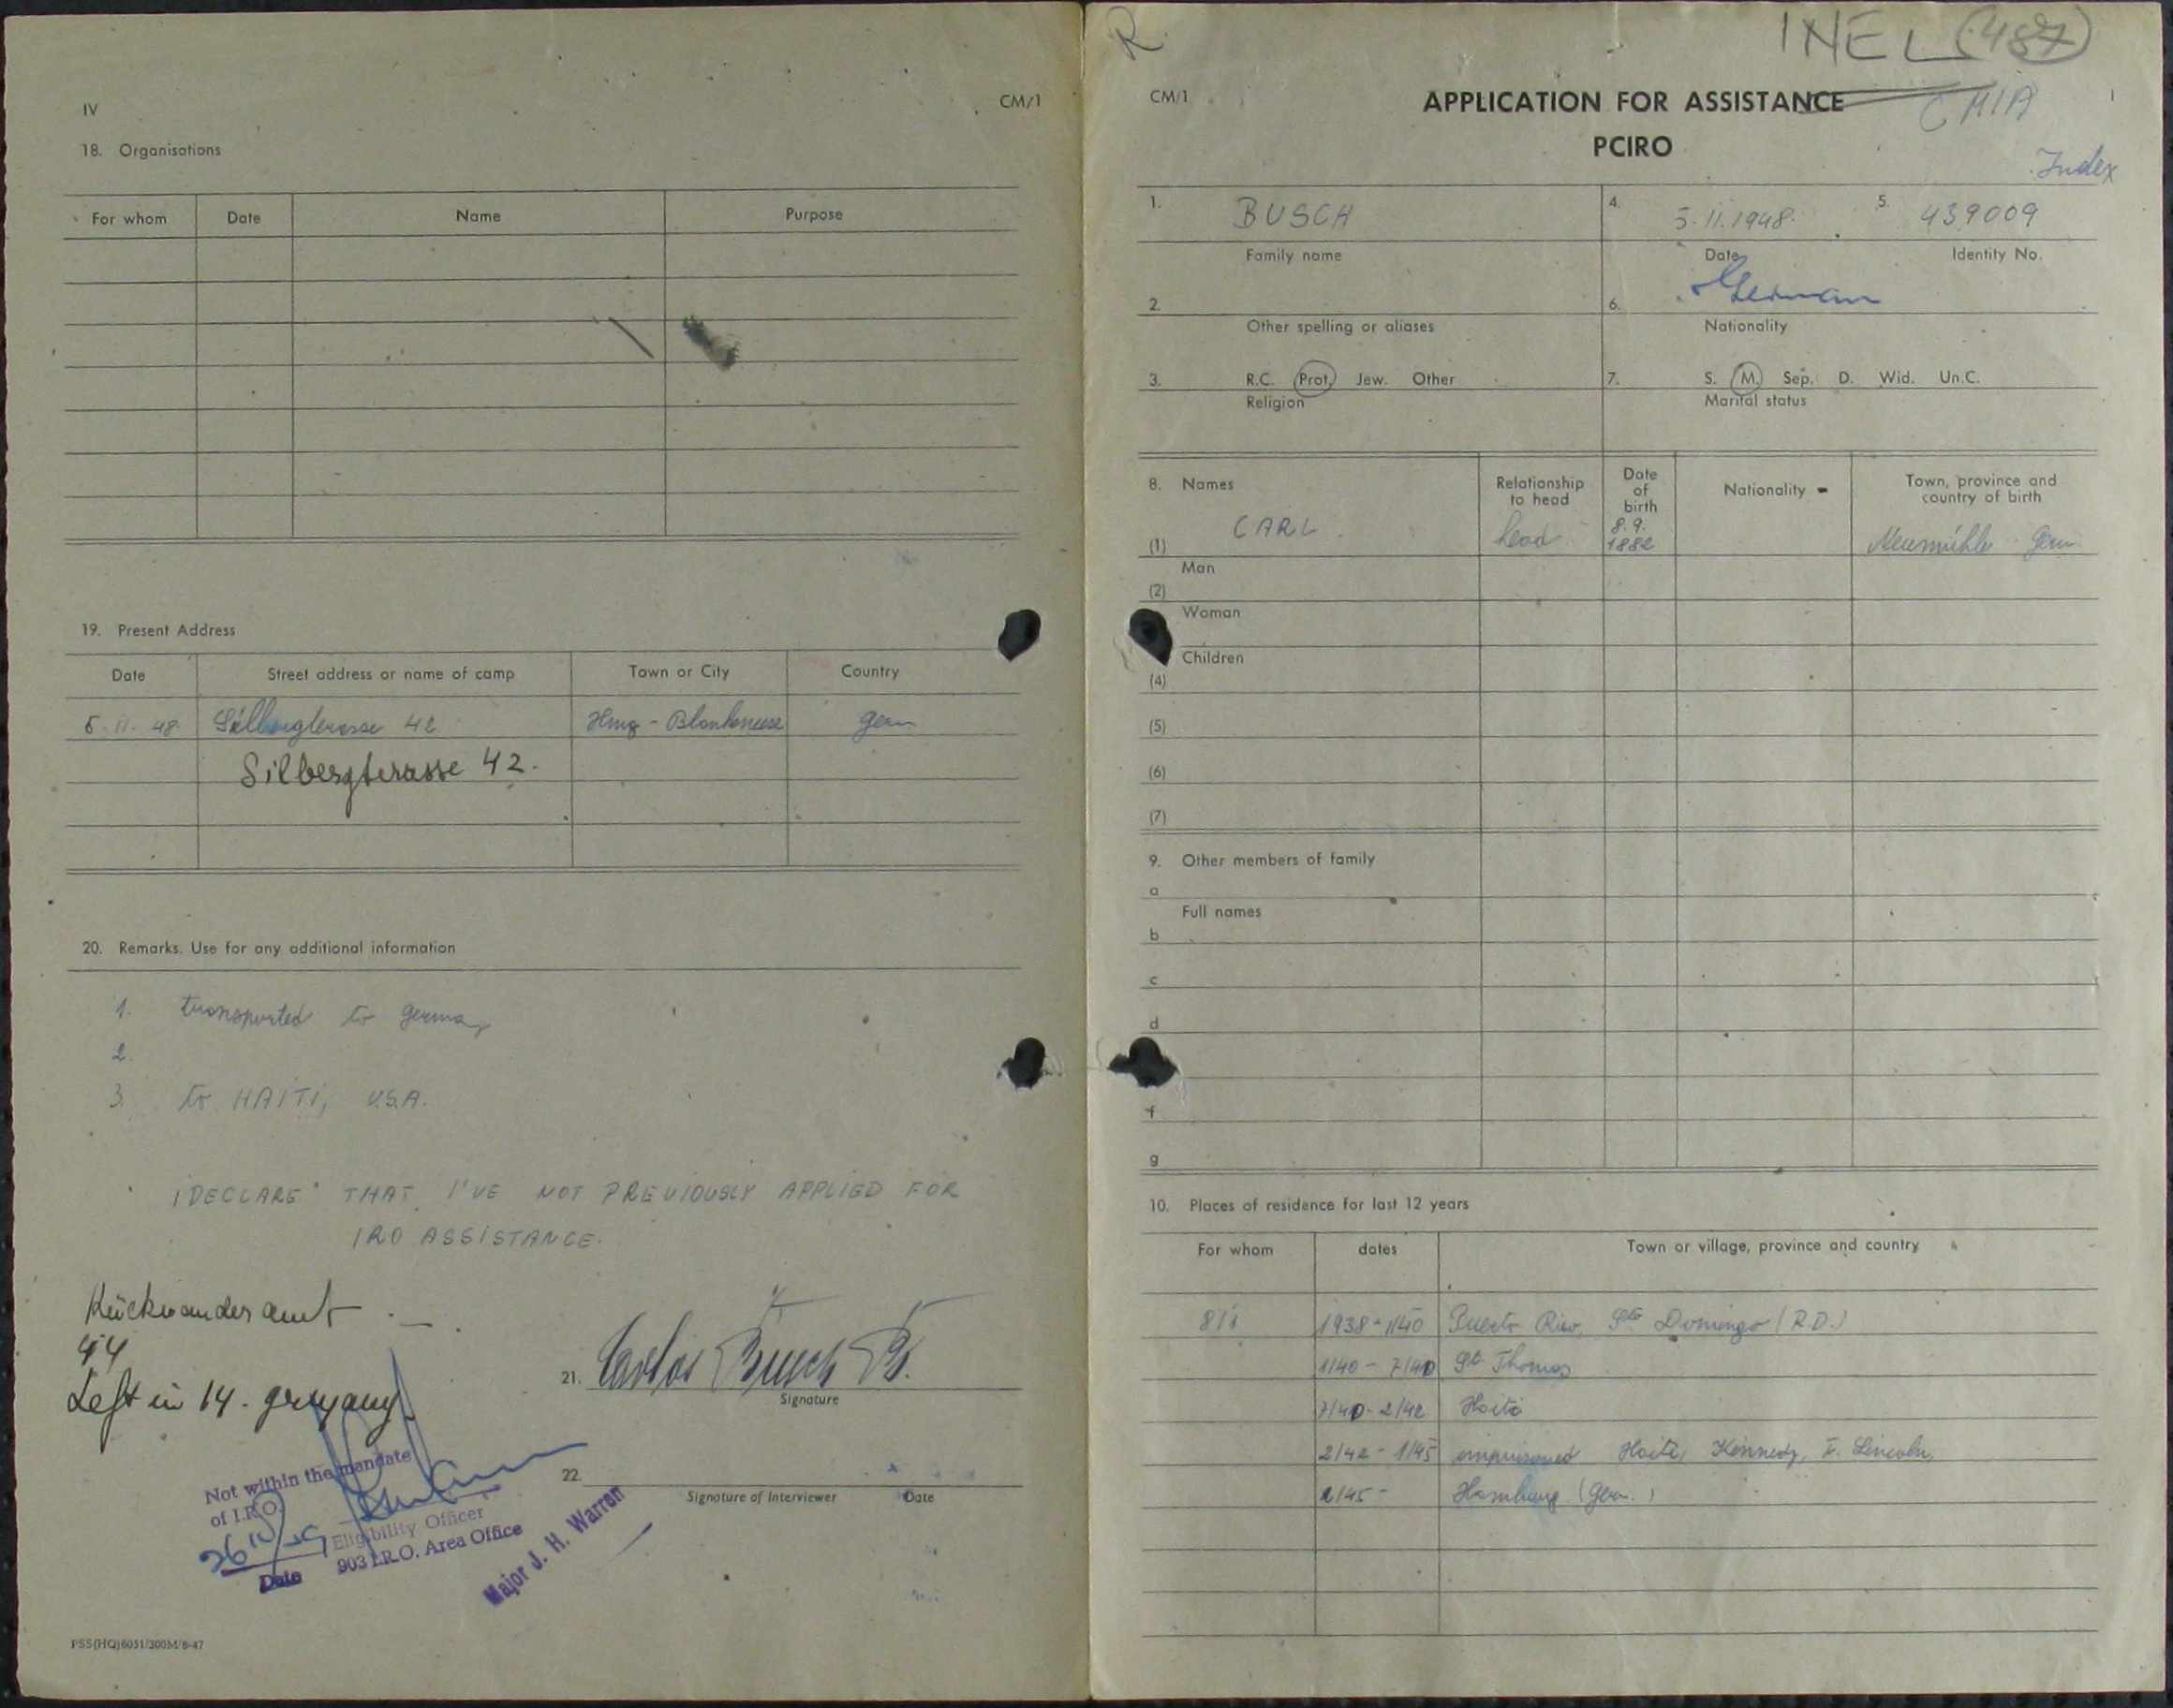 IV
CM/1
18. Organisations
For whom Date Name Purpose
19. Present Address
Date Street address or name of camp Town or City Country
5.11.48 Hmg - Blankenese Germ
Silbergterasse 42.
20. Remarks. Use for any additional information
1. transported to Germany
2.
3. to HAITI, U.S.A.
I DECLARE THAT I'VE NOT PREVIOUSLY APPLIED FOR
IRO ASSISTANCE.
Rückwanderamt
44
Left in 14. germany
21. Carlos Busch
Signature
Not within the mandate
of I.R.O.
Eligibility Officer
Date 903 I.R.O. Area Office
Major J. H. Warren
22.
Signature of Interviewer Date
PSS(HQ)6051/300M/8-47
R.
INEL (487)
CM/1
APPLICATION FOR ASSISTANCE
PCIRO
CM1A
Index
1. BUSCH 4. 5.11.1948. 5. 439009
Family name Date Identity No.
2. 6. German
Other spelling or aliases Nationality
3. R.C. Prot. Jew. Other 7. S. M. Sep. D. Wid. Un.C.
Religion Marital status
8. Names Relationship to head Date of birth Nationality Town, province and country of birth
(1) CARL head 8.9. 1882 Neumühle Germ
Man
(2)
Woman
Children
(4)
(5)
(6)
(7)
9. Other members of family
a
Full names
b
c
d
f
g
10. Places of residence for last 12 years
For whom dates Town or village, province and country
8/1 1938-1/40 Puerto Rico, Sto Domingo (R.D.)
1/40 - 7/40 St. Thomas
7/40 - 2/42 Haiti
2/42 - 1/45 imprisoned Haiti, Kennedy, F. Lincoln
2/45 - Hamburg (Germ.)